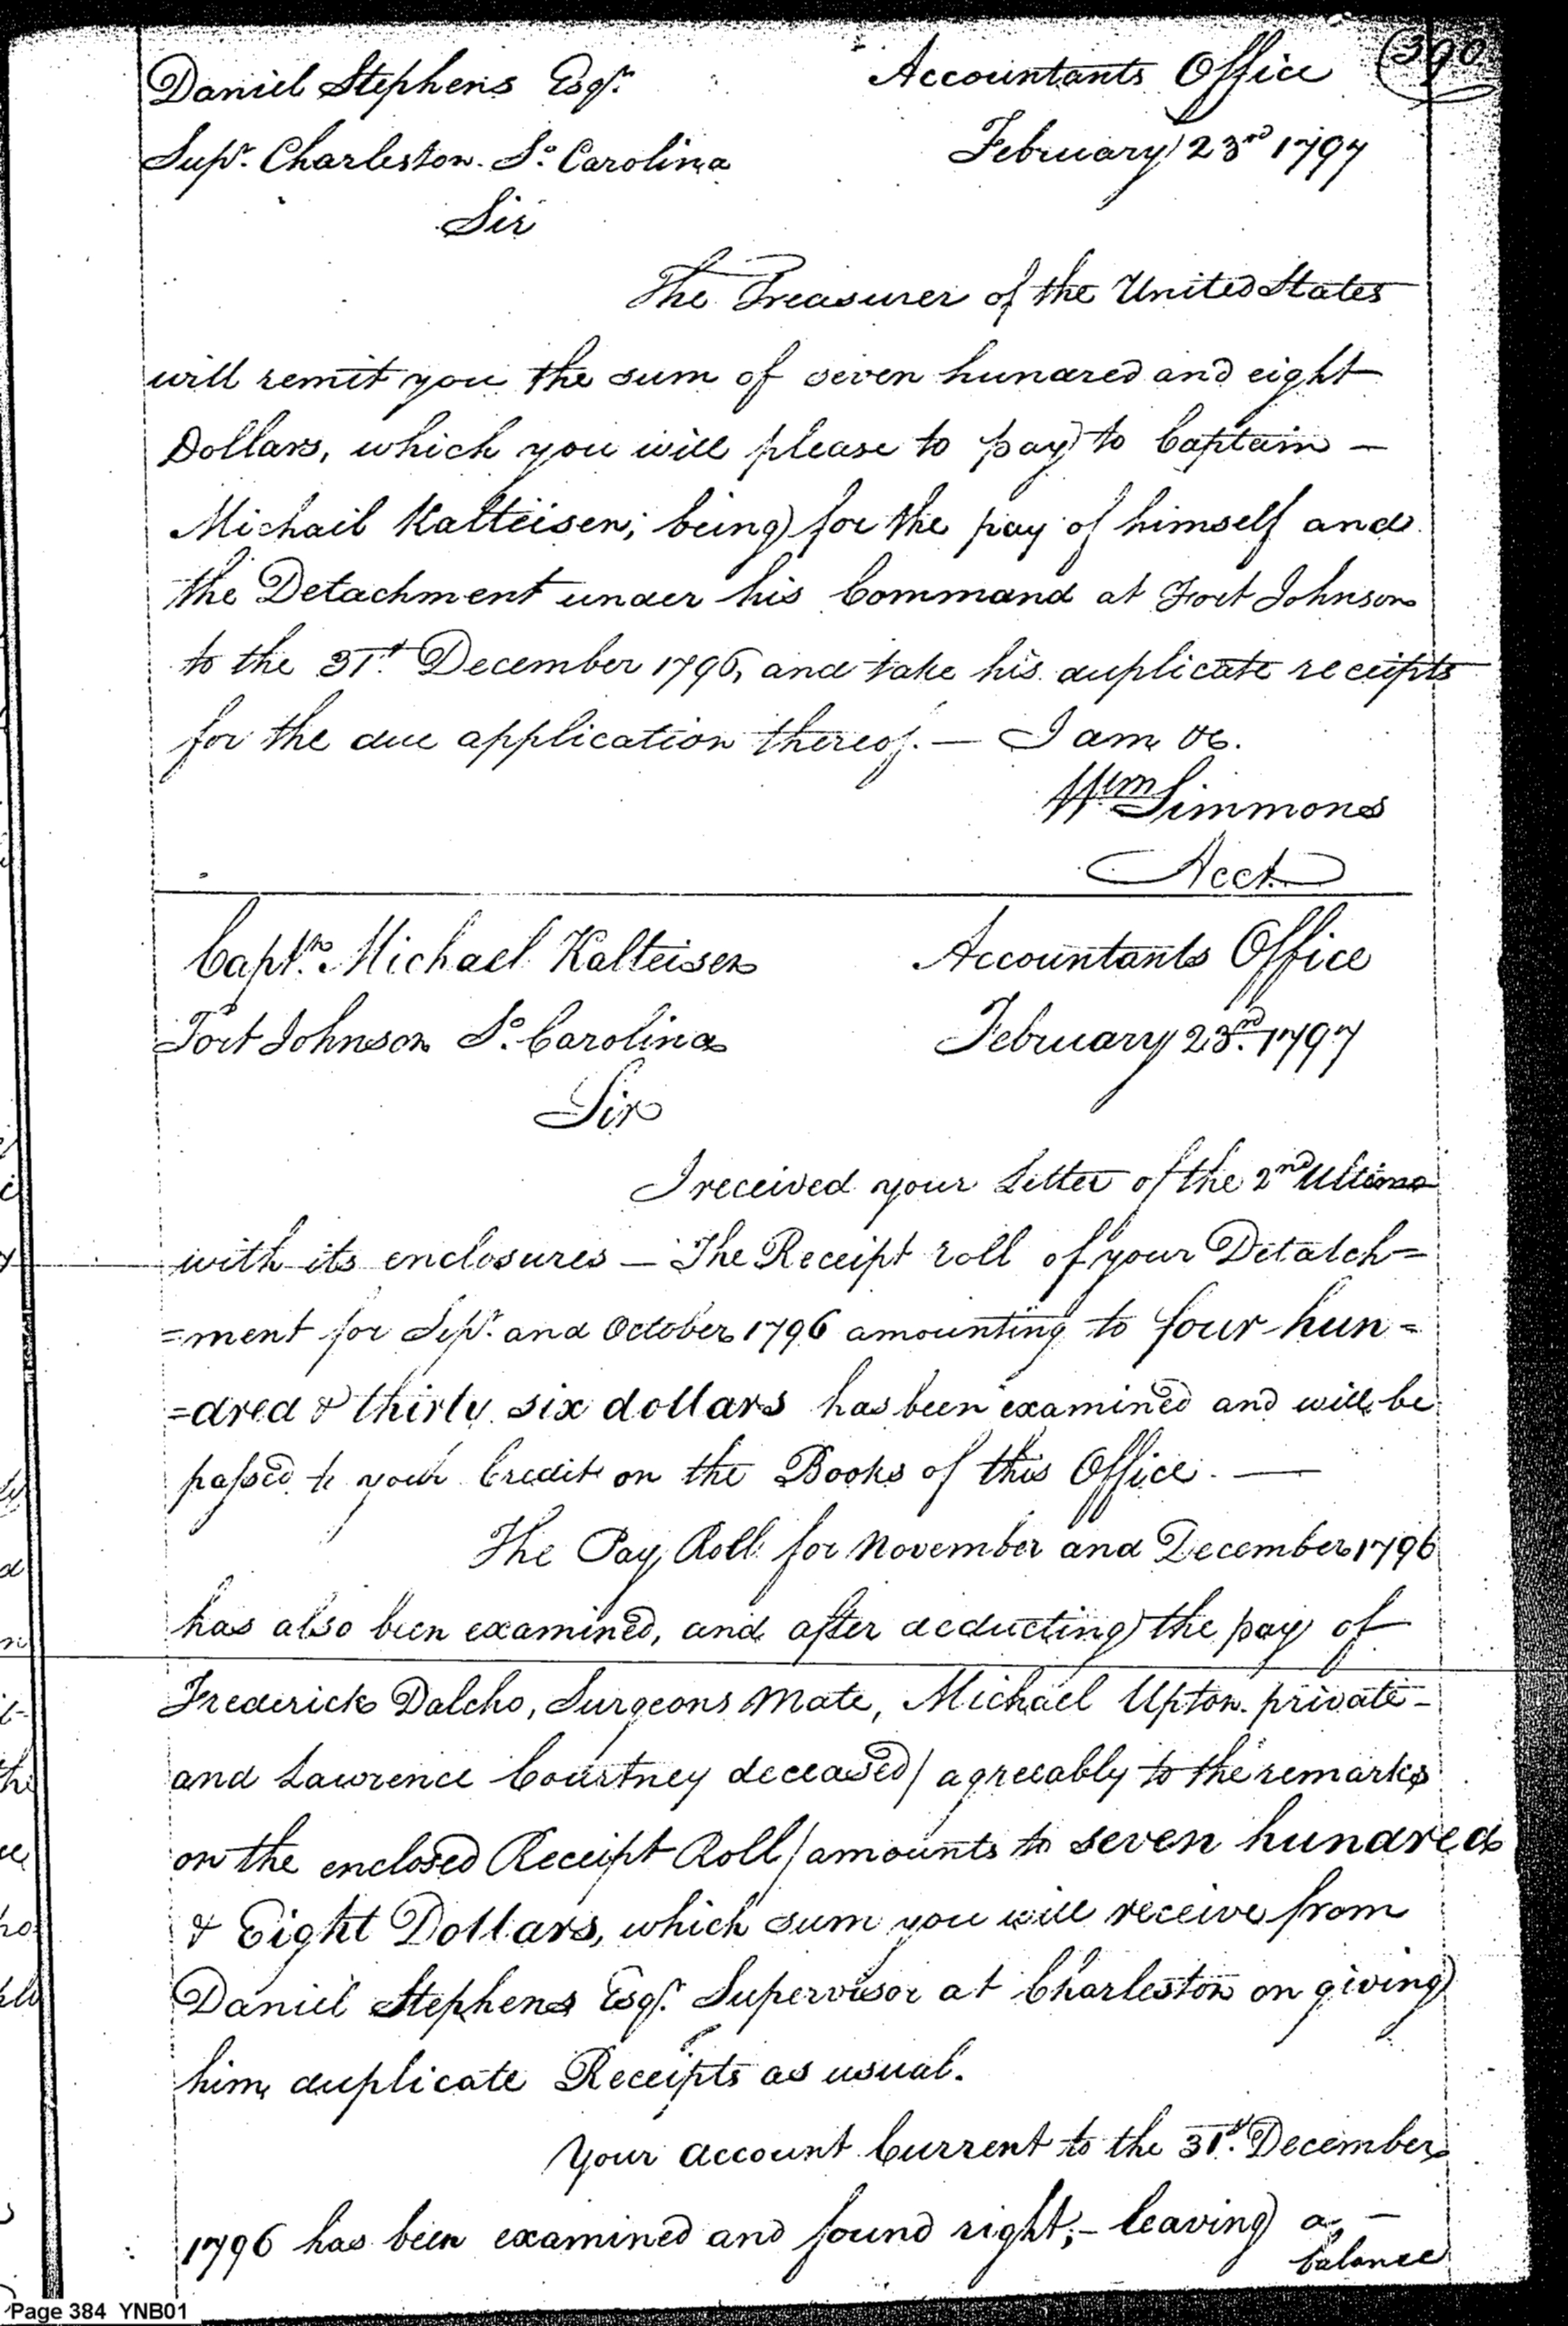 (390)
Daniel Stephens Esqr. Accountants Office
Supr. Charleston. So. Carolina February 23rd 1797
Sir
The Treasurer of the United States
will remit you the sum of seven hundred and eight
Dollars, which you will please to pay to Captain —
Michail Kalteisen; being for the pay of himself and
the Detachment under his Command at Fort Johnson
to the 31st. December 1796, and take his duplicate receipts
for the due application thereof. — I am &c.
Wm Simmons
Acct.
Captn. Michael Kalteisen Accountants Office
Fort Johnson So. Carolina February 23rd. 1797
Sir
I received your Letter of the 2nd Ultimo
with its enclosures — The Receipt roll of your Ditatch=
=ment for Sepr. and October 1796 amounting to four hun=
=dred & thirty six dollars has been examined and will be
passed to your Credit on the Books of this Office. —
The Pay Roll for November and December 1796
has also been examined, and after deducting the pay of
Frederick Dalcho, Surgeons Mate, Michael Upton private-
and Lawrence Courtney deceased/ agreeably to the remarks
on the enclosed Receipt Roll/ amounts to seven hundred
& Eight Dollars, which sum you will receive from
Daniel Stephens Esqr. Supervisor at Charleston on giving
him duplicate Receipts as usual.
Your account Current to the 31st. December
1796 has been examined and found right;- leaving a —
balance
Page 384 YNB01